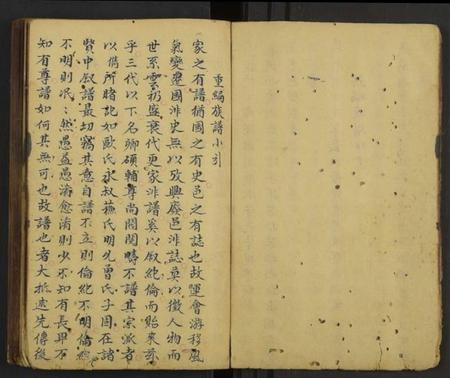 重編族譜小引
家之有譜猶國之有史邑之有誌也故運會游移風
氣變遷國非史無以攷興廢邑非誌莫以徵人物而
世系雲礽盛衰代更家非譜奚以叙綂倫而貽來茲
乎三代以下名卿碩輔尊尚閥閱疇不譜其宗派者
以僃所睹記如歐氏永叔蘓氏明允曾氏子固在諸
賢中叙譜最切竊其意自譜不立則倫綂不明倫綂
不明則泯泯然愚益愚淆愈淆則少不知有長卑不
知有尊譜如何其無可也故譜也者大抵述先傳後